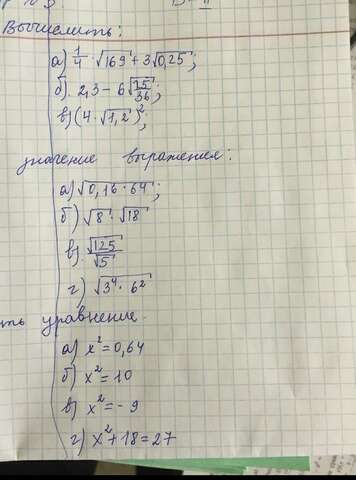 Вычислить:
а) 1/4 · √169 + 3√0,25;
б). 2,3 – 6√(15/36);
в) (4 · √1,2)²;
значение выражения:
а) √(0,16 · 64);
б) √8 · √18;
в). √125/√5
г) √(3⁴ · 6²)
ть уравнение.
а) x² = 0,64
б) x² = 10
в) x² = – 9
г) x² + 18 = 27